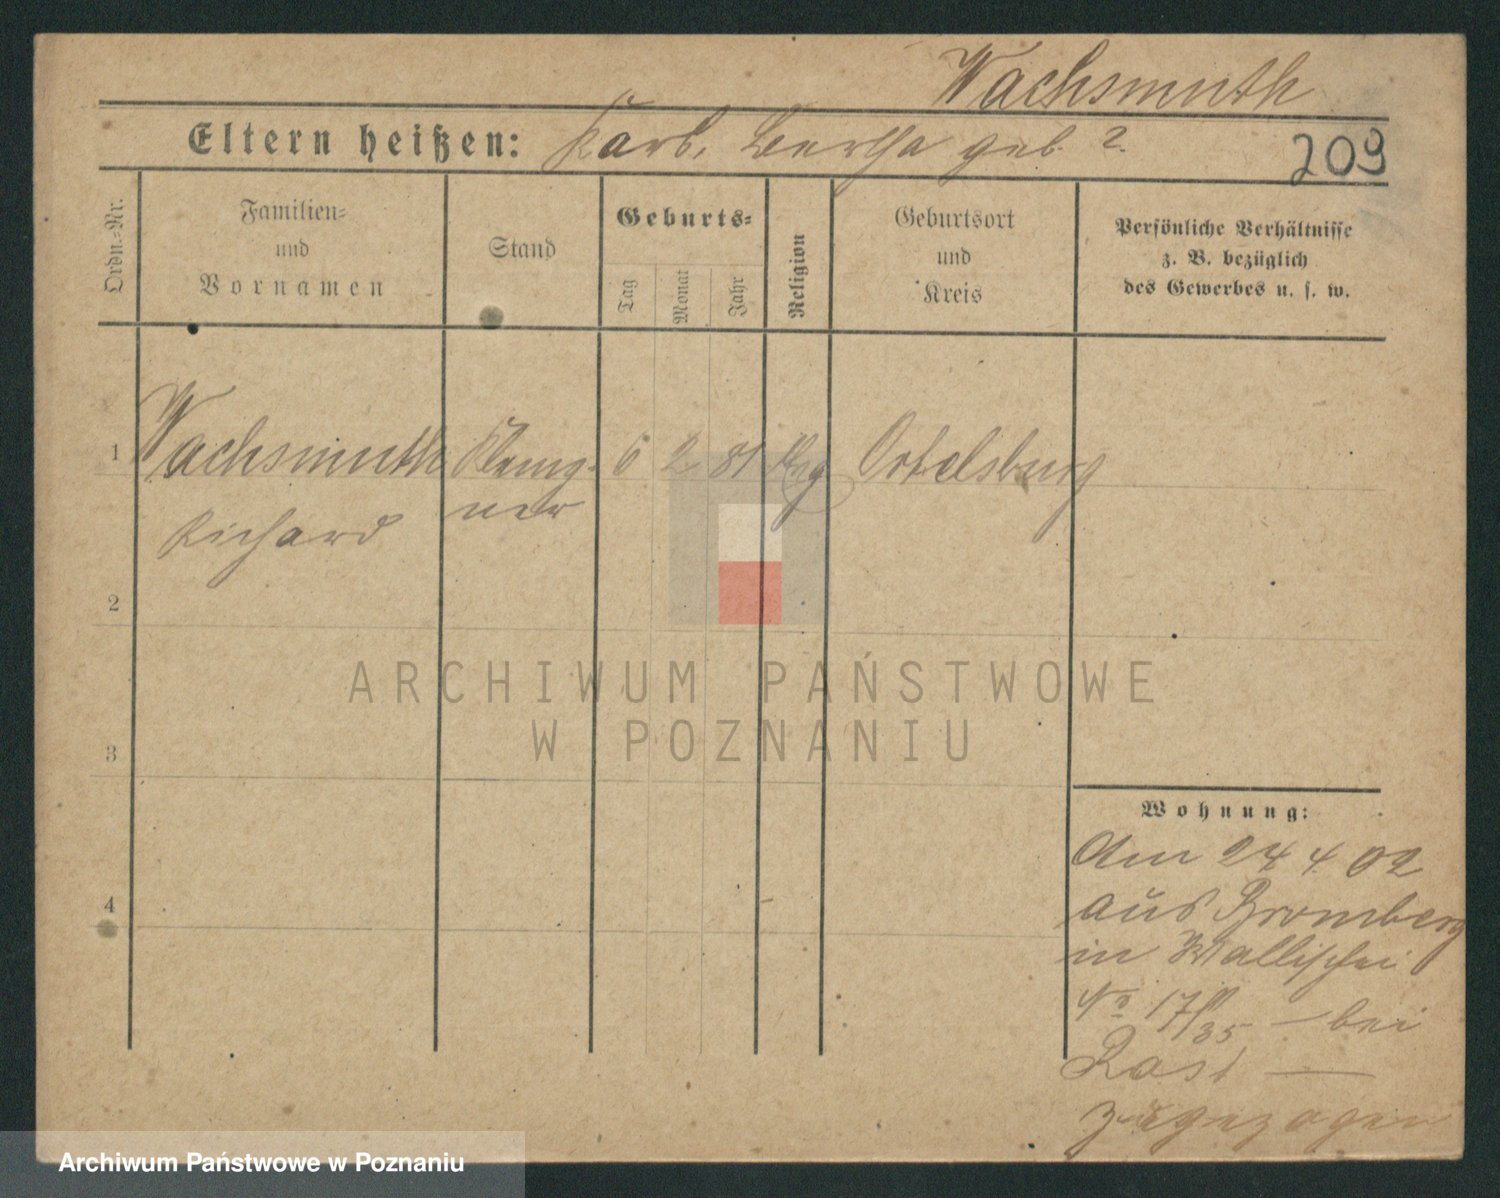 Wachsmuth
Eltern heißen: Karl, Bertha geb. ?
209
Ordn.-Nr.
Familien-
und
Vornamen
Stand
Geburts-
Tag
Monat
Jahr
Religion
Geburtsort
und
Kreis
Persönliche Verhältnisse
z. B. bezüglich
des Gewerbes u. s. w.
1 Wachsmuth Klemp- 6 2 81 Evg Ortelsburg
Richard ner
2
3
4
Wohnung:
Am 24 4 02
aus Bromberg
in Wallischei
No 17/35 – bei
Rast —
zugezogen
ARCHIWUM PAŃSTWOWE
W POZNANIU
Archiwum Państwowe w Poznaniu